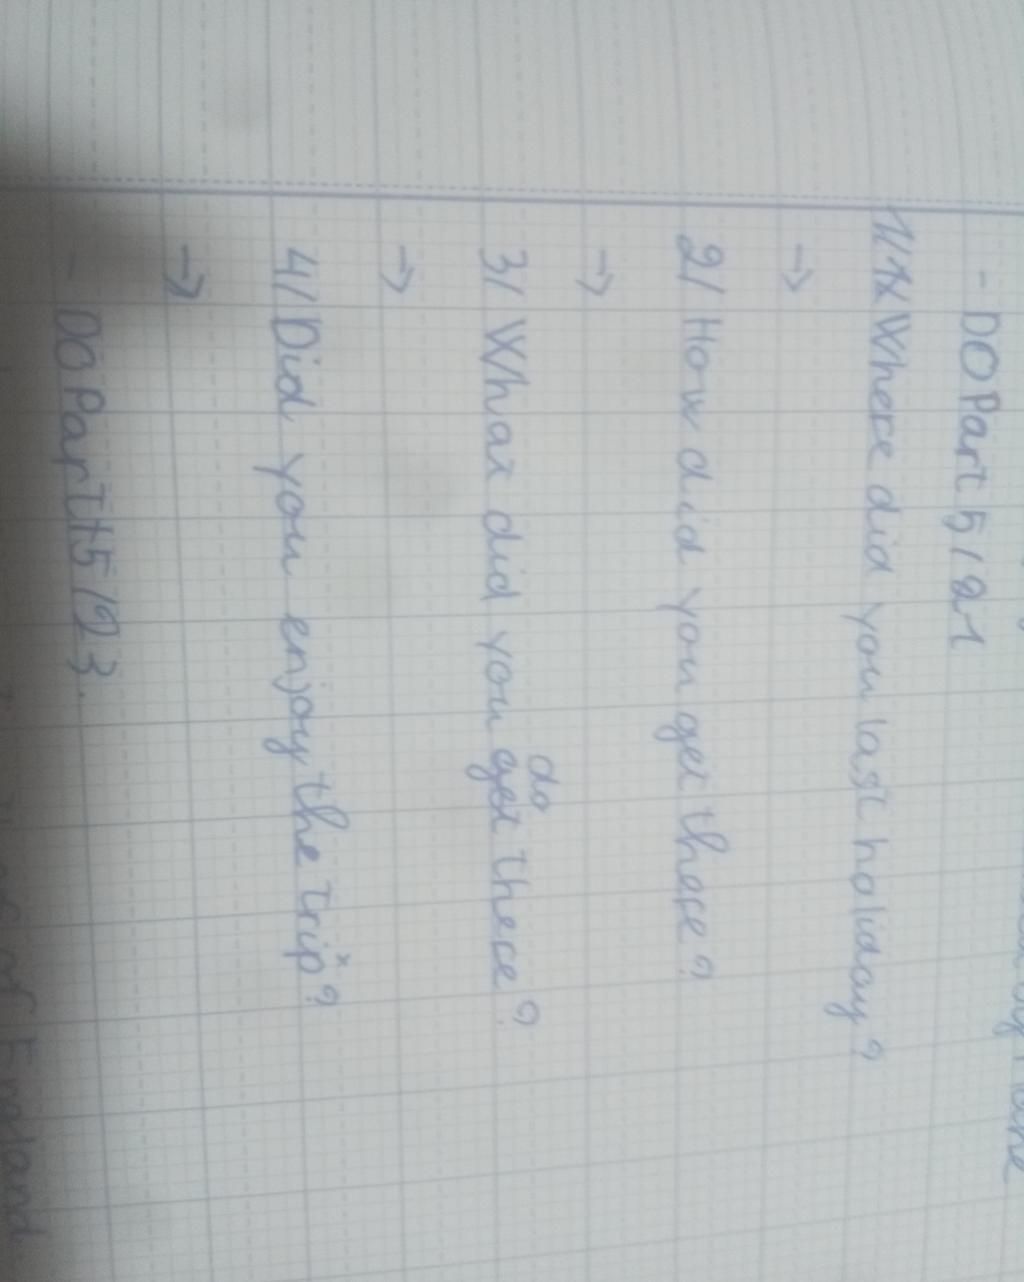 - DO Part 5 / 21
1/ Where did you last holiday?
→
2/ How did you get there?
→
3/ What did you do there?
→
4/ Did you enjoy the trip?
→
- DO Part 5 / 23.
England